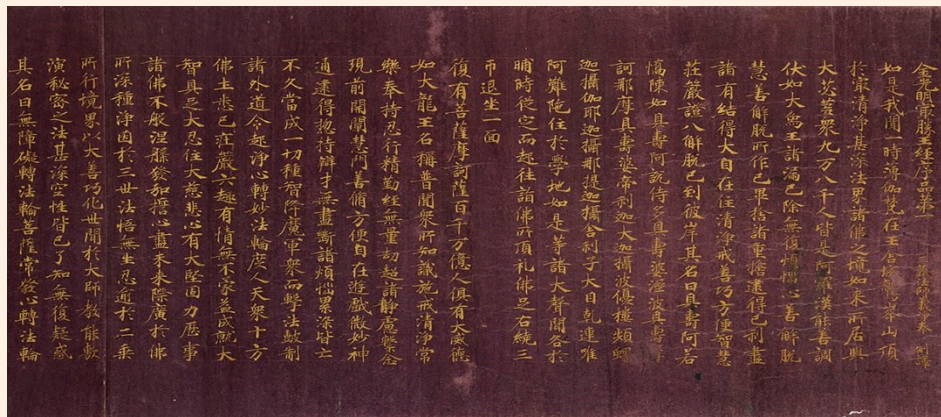 金光明最勝王經序品第一 三藏法師義淨奉 制譯
如是我聞一時薄伽梵在王舍城鷲峯山頂
於最清淨甚深法界諸佛之境如來所居與
大苾蒭衆九万八千人皆是阿羅漢能善調
伏如大象王諸漏已除無復煩惱心善解脫
慧善解脫所作已畢捨諸重擔逮得己利盡
諸有結得大自在住清淨戒善巧方便智慧
莊嚴證八解脫已到彼岸其名曰具壽阿若
憍陳如具壽阿說侍多具壽婆濕波具壽摩
訶那摩具壽婆帝利迦大迦攝波優樓頻螺
迦攝伽耶迦攝那提迦攝舍利子大目乾連唯
阿難陁住於學地如是等諸大聲聞各於
晡時從定而起往詣佛所頂礼佛足右繞三
帀退坐一面
復有菩薩摩訶薩百千万億人俱有大威德
如大龍王名稱普聞衆所知識施戒清淨常
樂奉持忍行精勤經無量劫超諸靜慮繫念
現前開闡慧門善脩方便自在遊戲微妙神
通逮得惣持辯才無盡斷諸煩惱累染皆亡
不久當成一切種智降魔軍衆而擊法皷制
諸外道令起淨心轉妙法輪度人天衆十方
佛土悉已莊嚴六趣有情無不蒙益成就大
智具足大忍住大慈悲心有大堅固力歷事
諸佛不般涅槃發弘誓心盡未來際廣於佛
所深種淨因於三世法悟無生忍逾於二乘
所行境界以大善巧化世閒於大師教能敷
演秘密之法甚深空性皆已了知無復疑惑
其名曰無障礙轉法輪菩薩常發心轉法輪